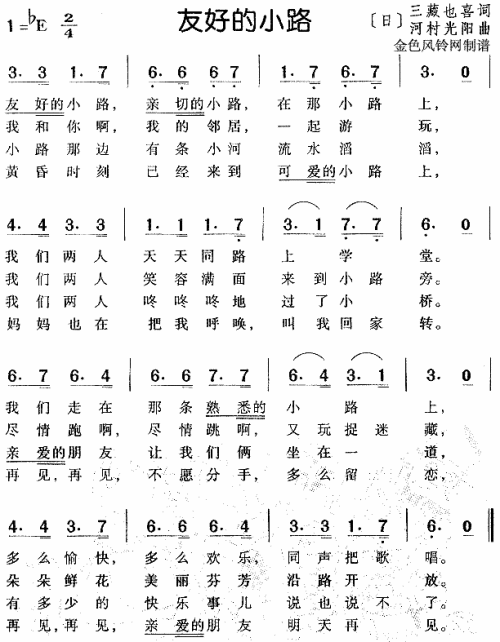 友好的小路
1=♭E 2/4
〔日〕三藏也喜词
河村光阳曲
金色风铃网制谱
3. 3 1. 7 | 6. 6 6 7 | 3. 3 1. 7 | 6. 0 |
友好的小路, 亲切的小路, 在那小路上,
我和你啊, 我的邻居, 一起游玩,
小路那边 有条小河 流水滔滔,
黄昏时刻 已经来到 可爱的小路上,
4. 4 3. 3 | 1. 1 1. 7 | 3. 1 7. 7 | 6. 0 |
我们两人 天天同路 上学堂。
我们两人 笑容满面 来到小路旁。
我们两人 咚咚咚地 过了小桥。
妈妈也在 把我呼唤, 叫我回家转。
6. 7 6. 4 | 6. 7 6. 7 | 6. 4 3. 1 | 3. 0 |
我们走在 那条熟悉的 小路上,
尽情跑啊, 尽情跳啊, 又玩捉迷藏,
亲爱的朋友 让我们俩 坐在一道,
再见,再见, 不愿分手, 多么留恋,
4. 4 3. 7 | 6. 6 6. 4 | 3. 3 1. 7 | 6. 0 ‖
多么愉快, 多么欢乐, 同声把歌唱。
朵朵鲜花 美丽芬芳 沿路开放。
有多少的 快乐事儿 说也说不了。
再见,再见, 亲爱的朋友 明天再见。